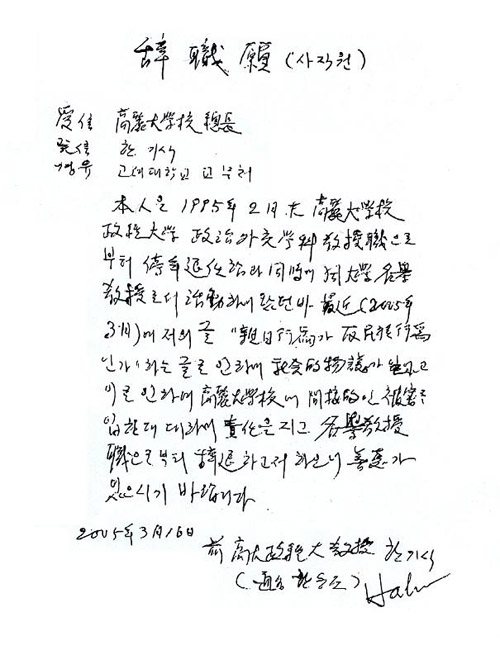 辞職願 (사직원)
受信 高麗大学校 總長
発信 한기식
경유 고려대학교 교무처
本人은 1995年 2月末 高麗大学校
政経大学 政治外交学科 敎授職으로
부터 停年退任함과 同時에 同大学 名譽
敎授로서 活動하여 왔던바 最近(2005年
3月)에 저의 글 "親日行為가 反民族行為
인가" 하는 글로 인하여 社会的 物議가 일고
이로 인하여 高麗大学校에 間接的인 被害를
입힌데 대하여 責任을 지고 名譽敎授
職으로부터 辞退하고저 하오니 善處가
있으시기 바랍니다
2005年 3月 16日
前 高大 政経大 敎授 한기식
(通名 한승조) Hahn